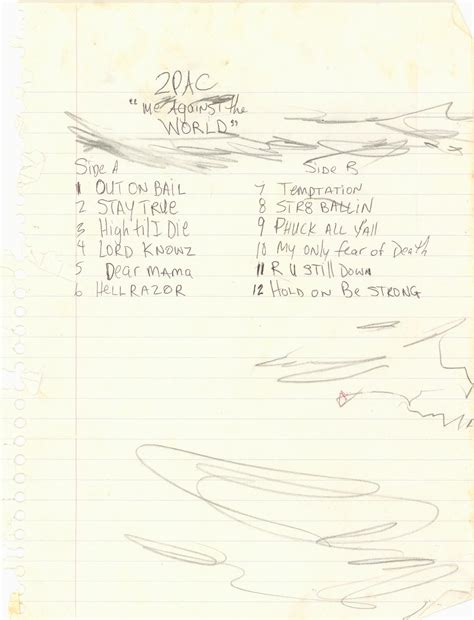 2PAC
"Me Against the
WORLD"
Side A
1 OUT ON BAIL
2 STAY TRUE
3 High til I Die
4 LORD KNOWZ
5 Dear MAMA
6 HELLRAZOR
Side B
7 TEMPTATION
8 STR8 BALLIN
9 PHUCK ALL Y'All
10 My only fear of Death
11 R U Still Down
12 HOLD ON BE STRONG